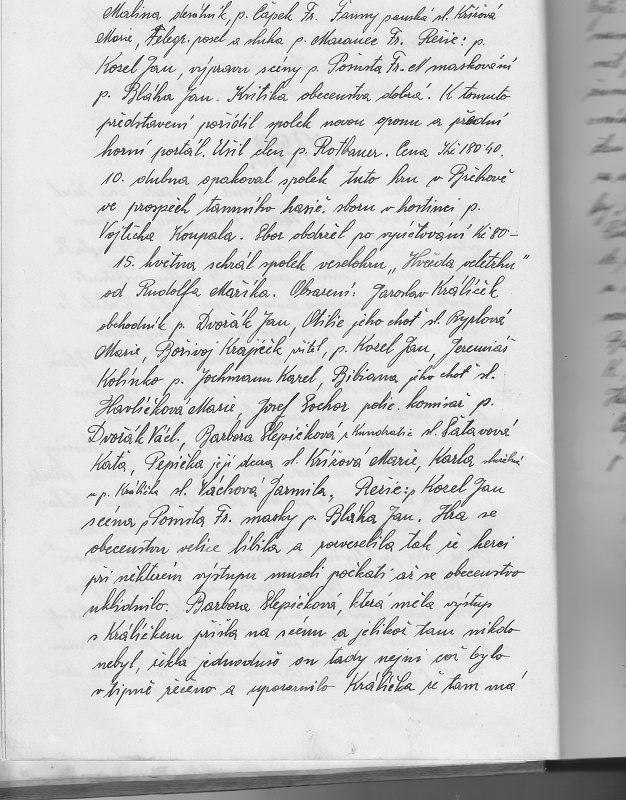 Malina sluečník, p. Čapek Fr. Fanny panská sl. Křížová
Marie, Telegr. posel a sluha p. Maranec Fr. Režie: p.
Kozel Jan, výprava scény p. Pomsta Fr. maskování
p. Bláha Jan. Kritika obecenstva dobrá. K tomuto
představení pořídil spolek novou oponu a přední
horní portál. Ušil člen p. Rotbauer. Cena Kč 180·40.
10. dubna opakoval spolek tuto hru v Břehově
ve prospěch tamního hasič. sboru v hostinci p.
Vojtěcha Koupala. Sbor obdržel po vyúčtování Kč 80·-
15. května sehrál spolek veselohru „Hvězda veletrhu"
od Rudolfa Maříka. Obsazení: Jaroslav Králíček
obchodník p. Dvořák Jan, Otilie jeho choť sl. Byrlová
Marie, Bořivoj Krajíček učitel, p. Kozel Jan, Jeremiáš
Kolínko p. Jochmann Karel, Bibiana jeho choť sl.
Havlíčková Marie, Josef Sochor polic. komisař p.
Dvořák Václ., Barbora Slepičková z Kundratic sl. Šátavová
Kaťa, Pepička její dcera sl. Křížová Marie, Karla služebná
u p. Králíčka sl. Váchová Jarmila, Režie: p. Kozel Jan
scéna p. Pomsta Fr. masky p. Bláha Jan. Hra se
obecenstvu velice líbila a rozveselila tak že herci
při některém výstupu museli počkati až se obecenstvo
uklidnilo. Barbora Slepičková, která měla výstup
s Králíčkem přišla na scénu a jelikož tam nikdo
nebyl, řekla jednoduš on tady nejni což bylo
vtipně řečeno a upozornilo Králíčka že tam má